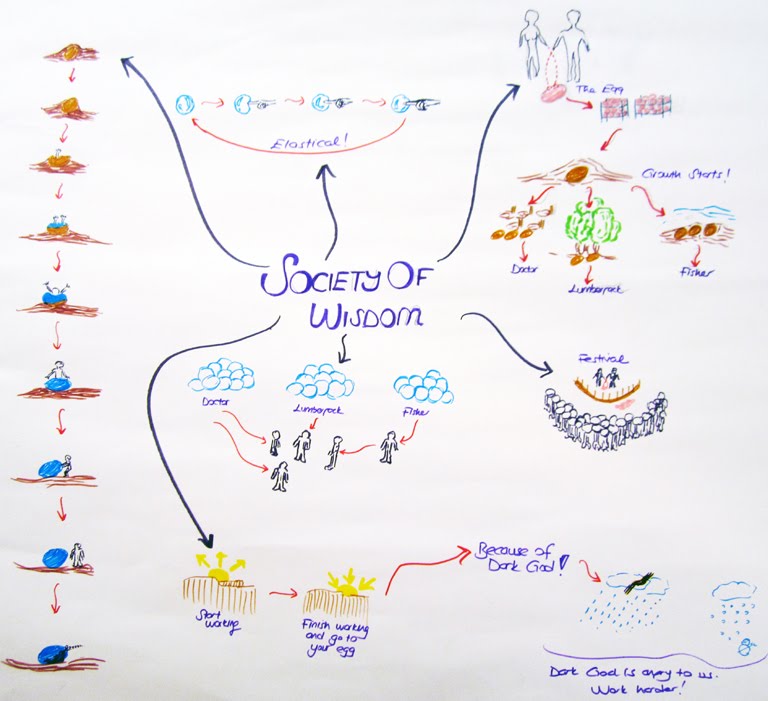 The Egg
Elastical!
Growth Starts!
Doctor
Lumberjack
Fisher
SOCIETY OF
WISDOM
Festival
Doctor
Lumberjack
Fisher
Because of
Dark God!
Start
working
Finish working
and go to
your egg
Dark God is angry to us.
Work harder!